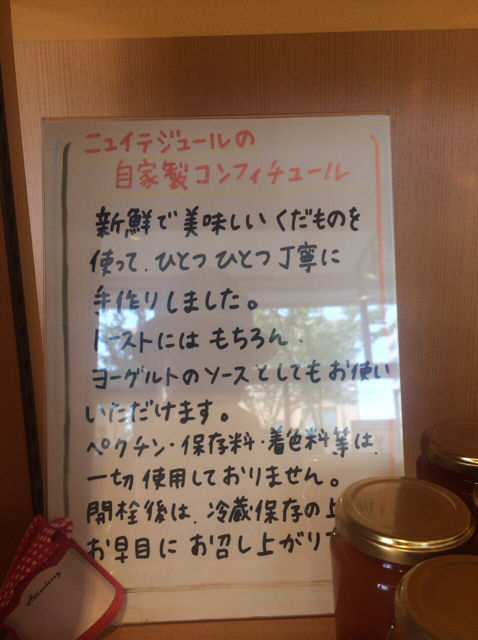 ニュイテジュールの
自家製コンフィチュール
新鮮で美味しいくだものを
使って、ひとつひとつ丁寧に
手作りしました。
トーストにはもちろん、
ヨーグルトのソースとしてもお使い
いただけます。
ペクチン・保存料・着色料等は、
一切使用しておりません。
開栓後は、冷蔵保存の上
お早目にお召し上がり
Strawberry